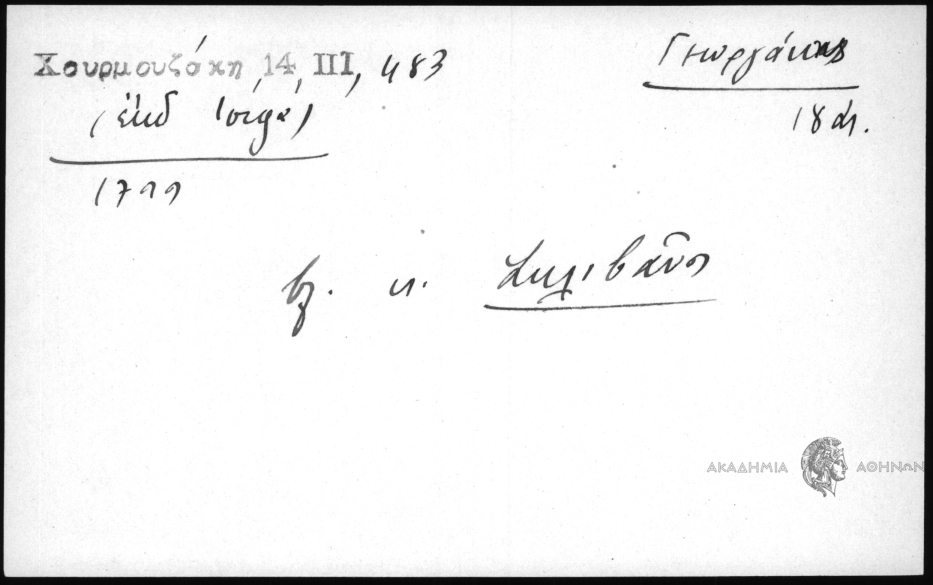 Χουρμουζάκη 14, III, 483
(έκδ Ισίφα)
1799
Γεωργάκης
18 αἰ.
βλ. κ. Σκριβᾶνο
ΑΚΑΔΗΜΙΑ ΑΘΗΝΩΝ